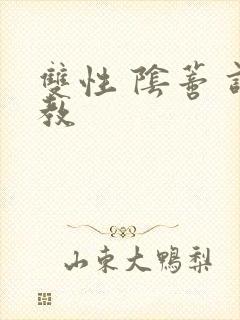 雙性 陰蒂 
教
山東大鴨梨